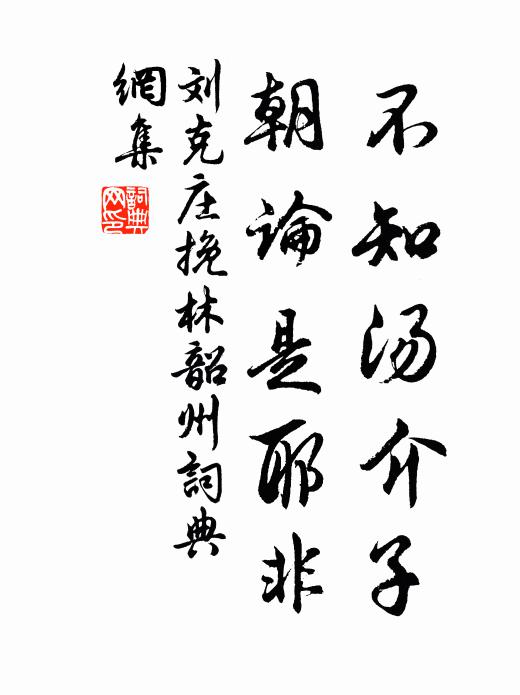 不知汤介子
朝論是耶非
刘克庄挽林韶州詞典
網集
詞典
网印